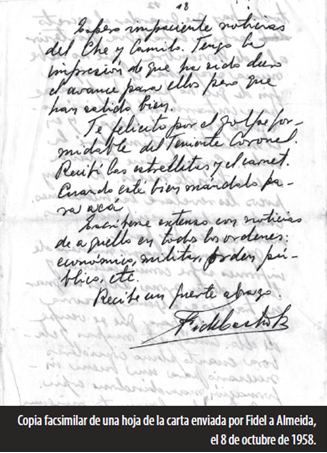 18
Espero impaciente noticias
del Che y Camilo. Tengo la
impresión de que ha sido duro
el avance para ellos pero que
han salido bien.
Te felicito por el golpe for-
midable del Teniente Coronel.
Recibí las estrellitas y el carnet.
Cuando esté bien mándalo pa-
ra acá.
Escríbeme extenso con noticias
de aquello en todos los ordenes:
económico, militar, orden pú-
blico, etc.
Recibe un fuerte abrazo.
Fidel Castro R
Copia facsimilar de una hoja de la carta enviada por Fidel a Almeida,
el 8 de octubre de 1958.